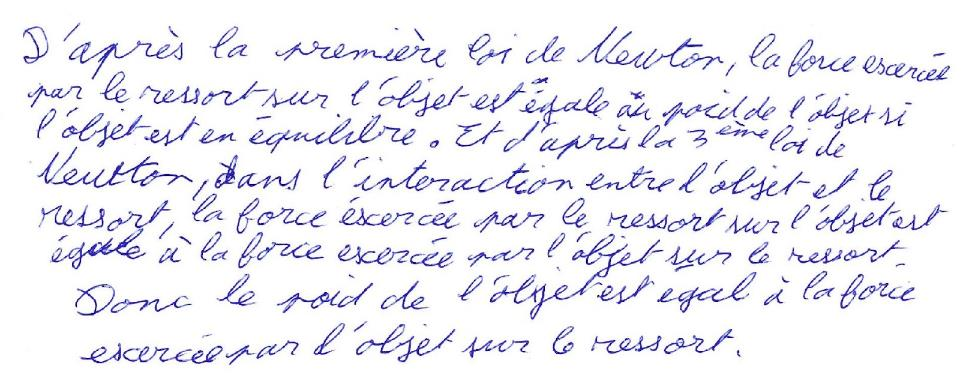 D'après la première loi de Newton, la force exercée
par le ressort sur l'objet est égale au poid de l'objet si
l'objet est en équilibre. Et d'après la 3ème loi de
Newtton, dans l'interaction entre l'objet et le
ressort, la force éxercée par le ressort sur l'objet est
égale à la force exercée par l'objet sur le ressort.
Donc le poid de l'objet est egal à la force
exercée par l'objet sur le ressort.